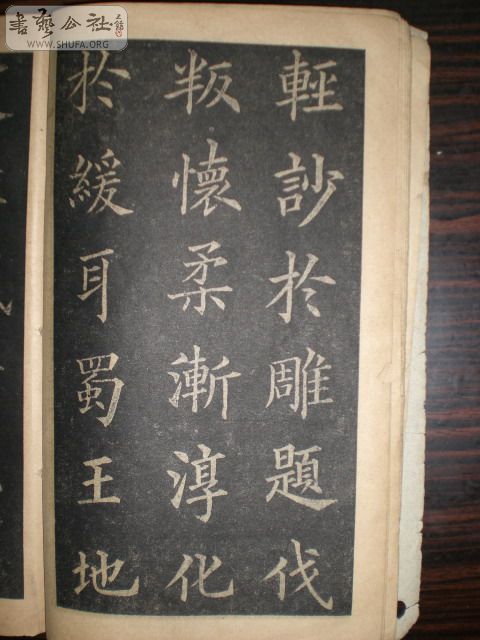 輕訬於雕題伐
叛懷柔漸淳化
於緩耳蜀王地
書藝公社
WWW.SHUFA.ORG